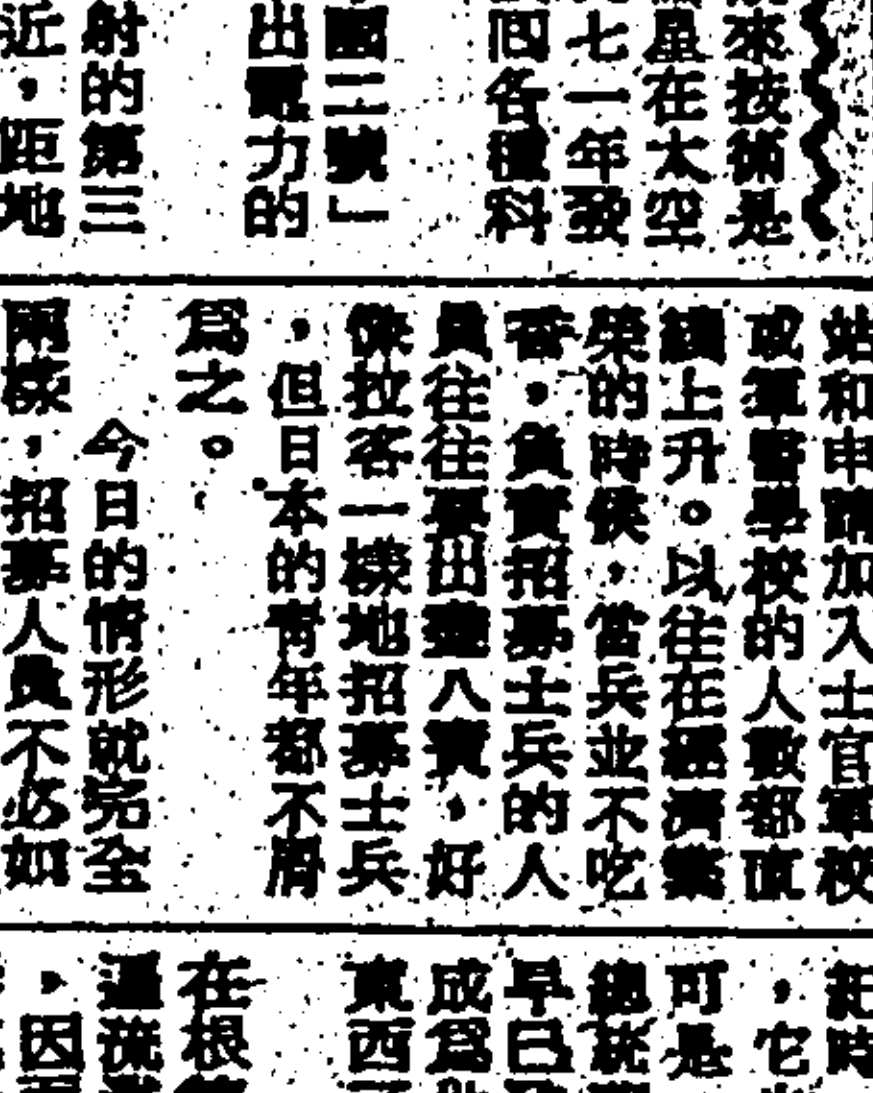 來技術是
星在太空
七一年發
囘各種科
國二號」
出電力的
射的第三
近,距地
始和申請加入士官軍校
或軍醫學校的人數都直
續上升。以往在經濟繁
榮的時候,當兵並不吃
香,負責招募士兵的人
員往往要出盡八寶,好
像拉客一樣地招募士兵
,但日本的青年都不屑
爲之。
今日的情形就完全
兩樣,招募人員不必如
記時
,它
可是
總統
早已
成爲
東西
在根
逼流
,因